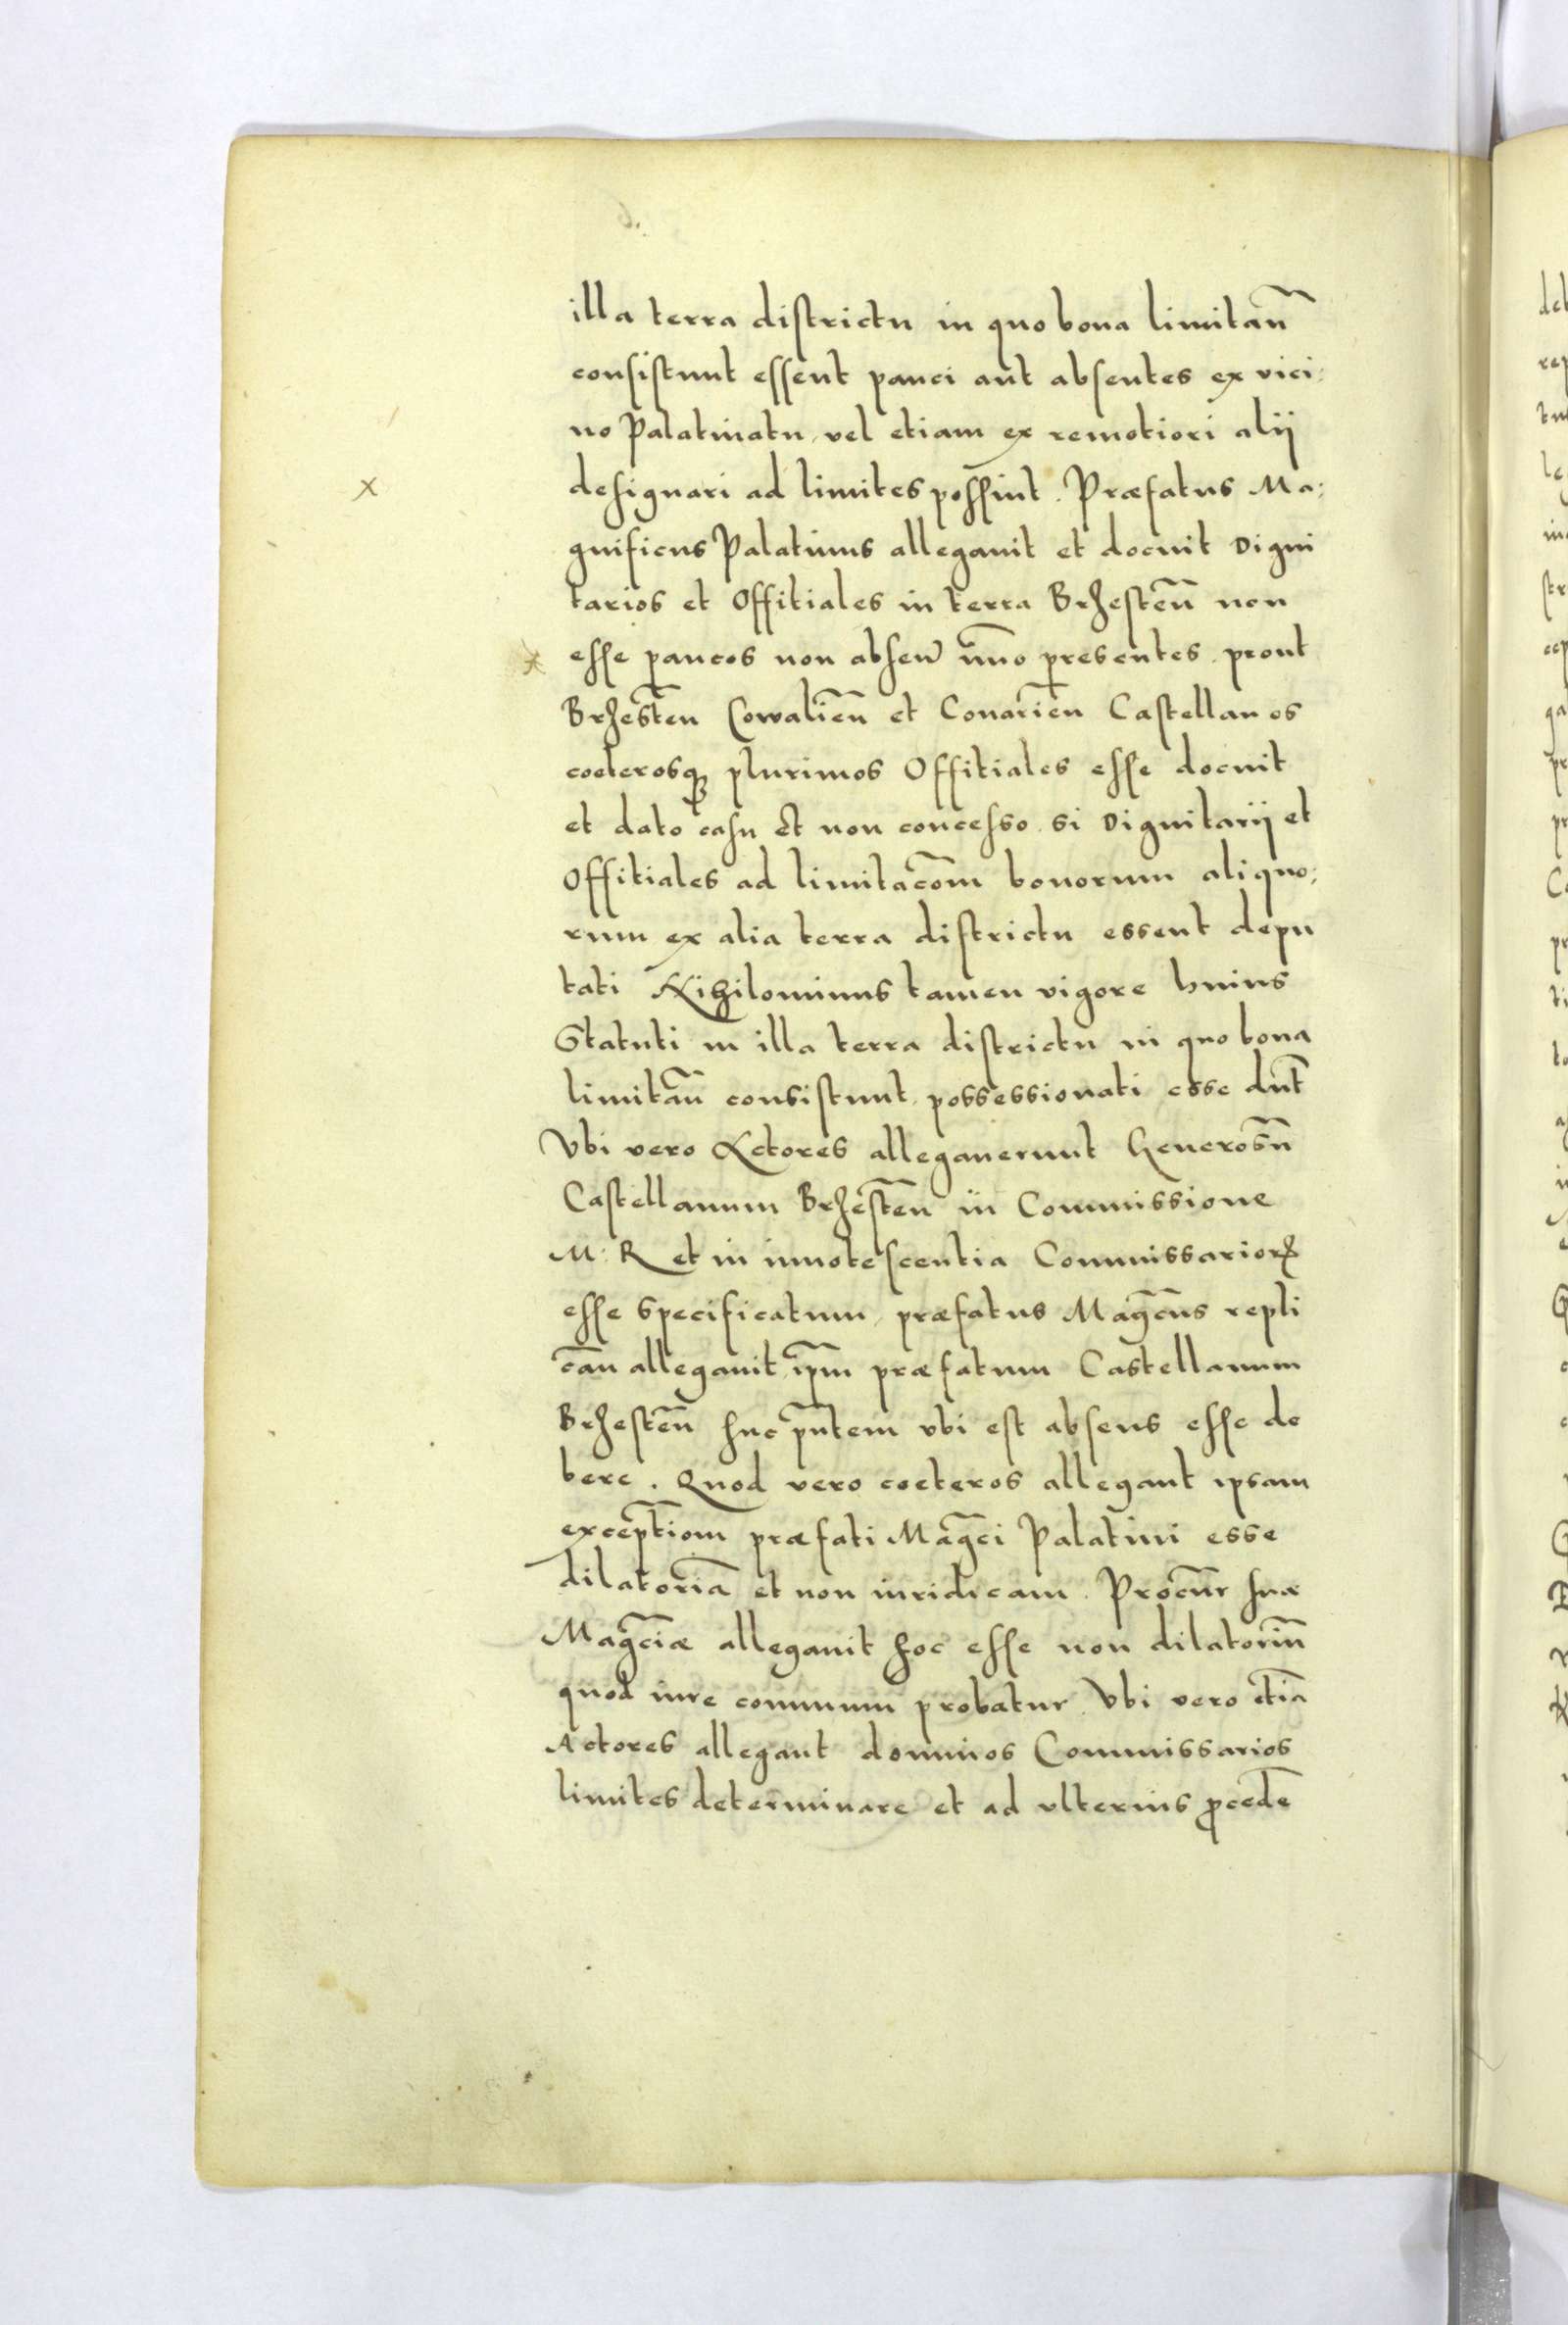 illa terra districtu in quo bona limitan̄
consistunt essent pauci aut absentes ex vici:
no Palatinatu, vel etiam ex remotiori alij
designari ad limites possint. Præfatus Ma:
gnificus Palatinus allegauit et docuit Digni
tarios et Offitiales in terra Brzesten̄ non
esse paucos non absen̄ im̄o presentes. prout
Brzestēn Cowaliēn et Conariēn Castellanos
coeterosq₃ plurimos Offitiales esse docuit
et dato casu et non concesso. si Dignitarij et
Offitiales ad limitacōm bonorum aliquo:
rum ex alia terra districtu essent depu
tati Nihilominus tamen vigore huius
Statuti in illa terra districtu in quo bona
limitan̄ consistunt, possessionati esse dn̄t
Vbi vero Actores allegauerunt Generosn̄
Castellanum Brzestēn in Commissione
M: R et in innotescentia Commissarioꝝ
esse specificatum, præfatus Magcūs repli
cān allegauit, ip̄m præfatum Castellanum
Brzestēn huc pn̄tem vbi est absens esse de
bere. Quod vero coeteros allegant ipsam
excepti̅om præfati Magc̄i Palatini esse
dilatoriā et non iuridicam. Procūr suæ
Magc̄iæ allegauit hoc esse non dilatoriū
quod iure communi probatur. Vbi vero etiā
Actores allegant dominos Commissarios
limites determinare et ad vlterius ꝓcedē